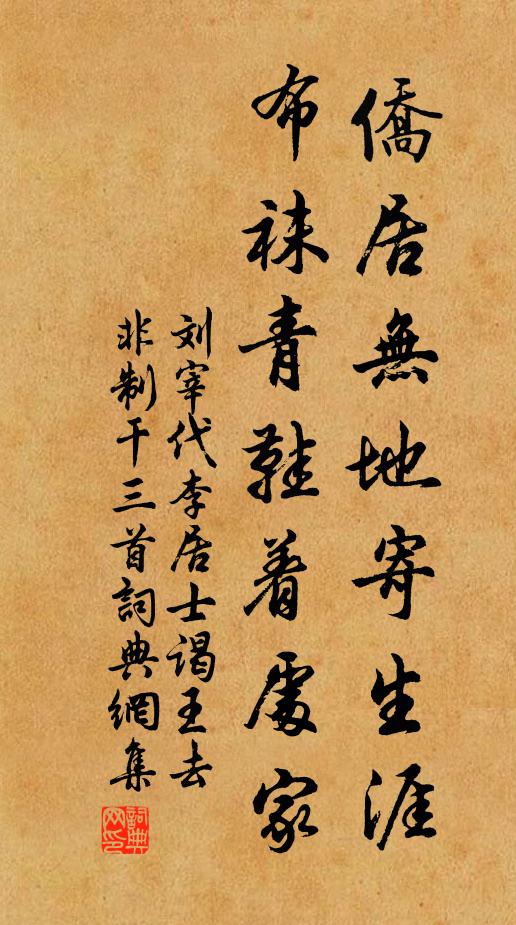 僑居無地寄生涯
布袜青鞋着處家
刘宰代李居士謁王去
非制干三首詞典網集
詞典网印